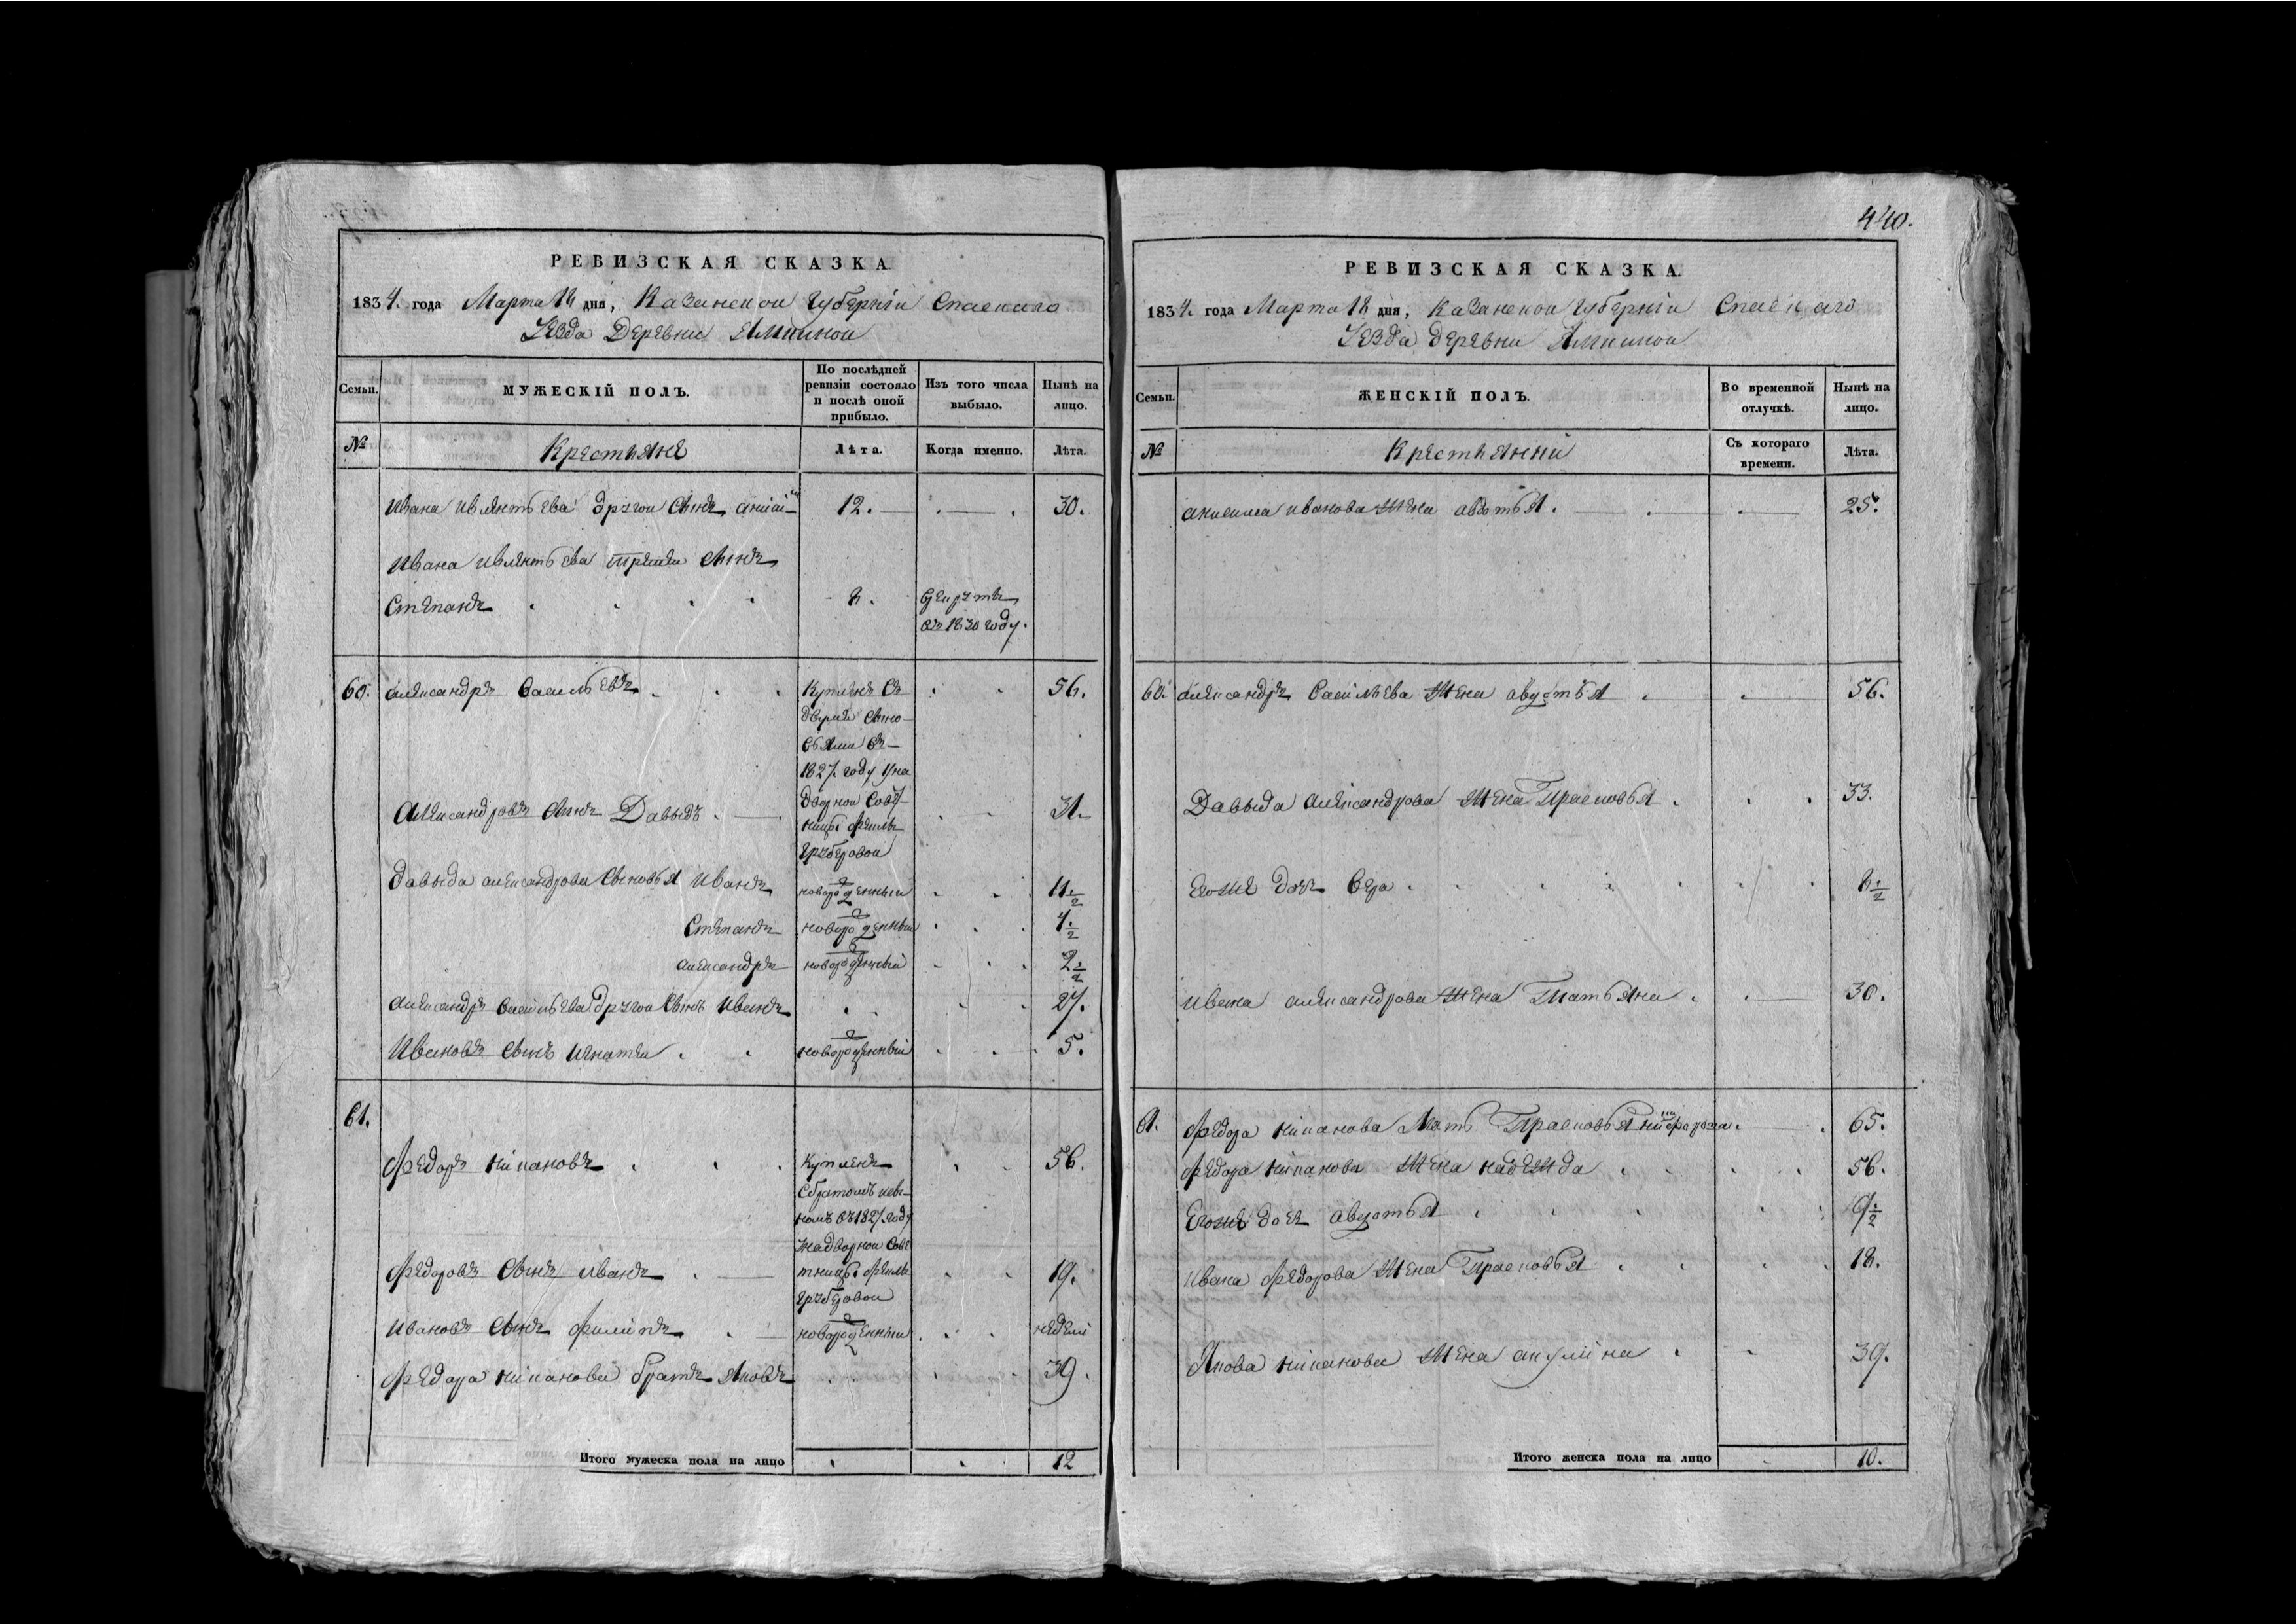 440.
РЕВИЗСКАЯ СКАЗКА.
1834. года Марта 18 дня, Казанскои Губернiи Спаскаго
Уезда Деревни Ямкинои
Семьи. МУЖЕСКIЙ ПОЛЪ. По послѣдней ревизiи состояло и послѣ оной прибыло. Изъ того числа выбыло. Нынѣ на лицо.
№ Крестьяне Лѣта. Когда именно. Лѣта.
Ивана другои сынъ 12. 30.
Ивана третеи сынъ
Степанъ 8.
въ 1830 году.
60. александръ Васильевъ 56.
Купленъ съ
двумя сыно-
вьями въ
1827. году у на
дворнои совѣт
ницы
александровъ сынъ Давыдъ 31.
давыда александрова сыновья иванъ новорожденныи 11 1/2
Степанъ новорожденныи 4 1/2
александръ новорожденныи 2 1/2
александра Васильева другои сынъ Иванъ 27.
Ивановъ сынъ игнатеи новорожденныи 5.
61.
Федоръ 56.
Купленъ
сбратомъ
въ 1827. году
у надворнои совѣ
тницы
Федоровъ сынъ иванъ 19.
Ивановъ сынъ филипъ новорожденныи недели
Федора братъ Яковъ 39.
Итого мужеска пола на лицо 12
РЕВИЗСКАЯ СКАЗКА.
1834. года Марта 18 дня, Казанскои Губернiи Спаскаго
Уезда деревни Ямкинои
Семьи. ЖЕНСКIЙ ПОЛЪ. Во временной отлучкѣ. Нынѣ на лицо.
№ Крестьянки Съ котораго времени. Лѣта.
иванова жена авдотья. 25.
60. александра Васильева жена авдотья 56.
Давыда александрова жена Прасковья 33.
Егоже дочь Вера 8 1/2
ивана александрова жена Татьяна 30.
61. Федора мать Прасковья 65.
Федора жена надежда 56.
Егоже дочь авдотья 9 1/2
ивана Федорова жена Прасковья 18.
Якова жена акулина 39.
Итого женска пола на лицо 10.